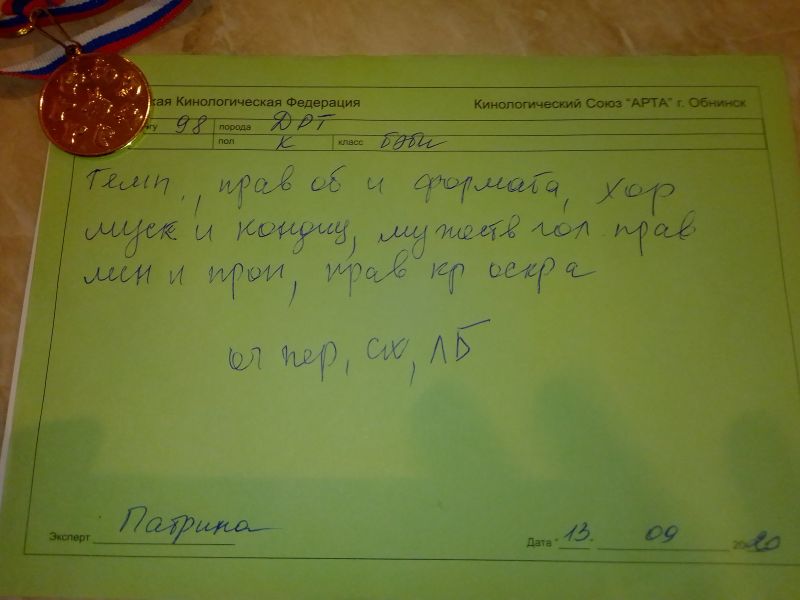 кая Кинологическая Федерация Кинологический Союз "АРТА" г. Обнинск
гу 98 порода ДРТ
пол К класс бэби
темп., прав об и формата, хор
муск и кондиц, мужеств гол. прав
лин и проп, прав кр окра
оч пер, СК, ЛБ
Эксперт Патрина Дата 13. 09 2020